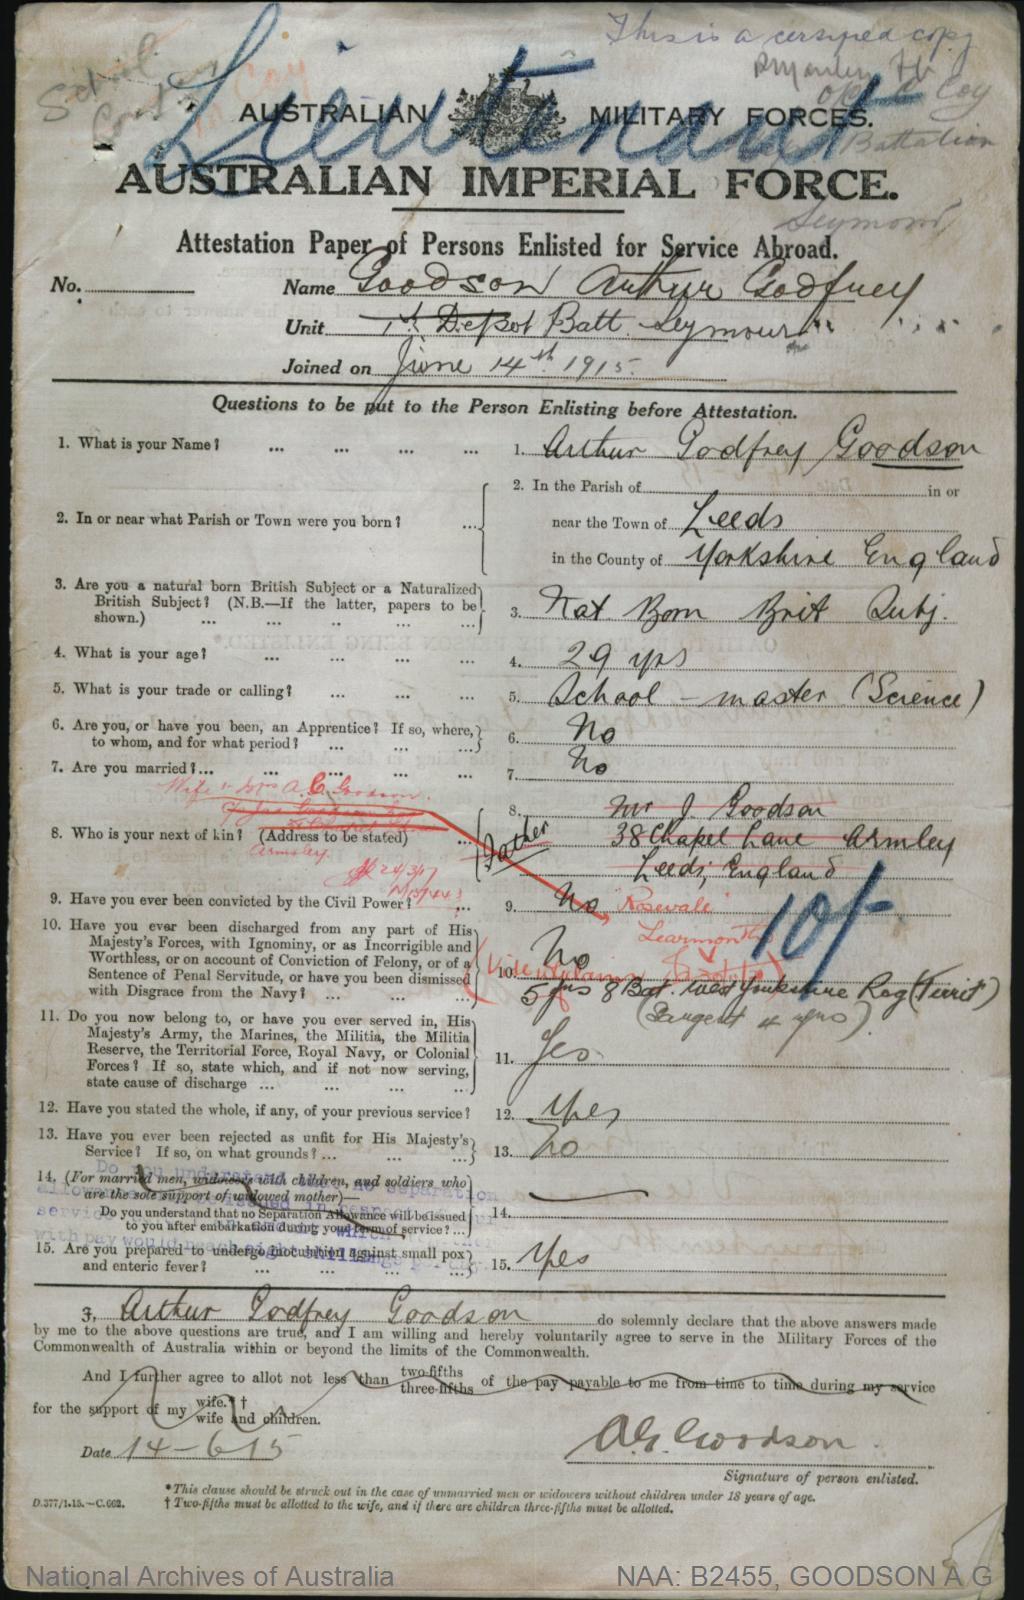 This is a certified copy
Lieutenant
School
Coy
Coy
Battalion
Seymour
AUSTRALIAN MILITARY FORCES.
AUSTRALIAN IMPERIAL FORCE.
Attestation Paper of Persons Enlisted for Service Abroad.
No. Name Goodson Arthur Godfrey
Unit 1st Depot Batt. Seymour
Joined on June 14th 1915
Questions to be put to the Person Enlisting before Attestation.
1. What is your Name? ... ... ... ... 1. Arthur Godfrey Goodson
2. In the Parish of in or
2. In or near what Parish or Town were you born? ... near the Town of Leeds
in the County of Yorkshire England
3. Are you a natural born British Subject or a Naturalized
British Subject? (N.B.—If the latter, papers to be
shown.) ... ... .. ... ... 3. Nat Born Brit Subj.
4. What is your age? ... ... ... ... 4. 29 yrs
5. What is your trade or calling? ... ... ... 5. School - master (Science)
6. Are you, or have you been, an Apprentice? If so, where,
to whom, and for what period? ... ... ... 6. No
7. Are you married? ... ... ... ... ... 7. No
Wife:- Mrs A. G. Goodson.
Armley.
24/3/17
8. Who is your next of kin? (Address to be stated) ... 8. Father Mr J. Goodson
38 Chapel Lane Armley
Leeds, England
9. Have you ever been convicted by the Civil Power? ... 9. No
"Rosevale"
Learmonth
10/-
10. Have you ever been discharged from any part of His
Majesty's Forces, with Ignominy, or as Incorrigible and
Worthless, or on account of Conviction of Felony, or of a
Sentence of Penal Servitude, or have you been dismissed
with Disgrace from the Navy? ... ... ... 10. No
5 yrs 8 Bat. West Yorkshire Reg (Territ)
(Sargent 4 yrs)
11. Do you now belong to, or have you ever served in, His
Majesty's Army, the Marines, the Militia, the Militia
Reserve, the Territorial Force, Royal Navy, or Colonial
Forces? If so, state which, and if not now serving,
state cause of discharge ... ... ... ... 11. Yes
12. Have you stated the whole, if any, of your previous service? 12. Yes
13. Have you ever been rejected as unfit for His Majesty's
Service? If so, on what grounds? ... ... ... 13. No
14. (For married men, widowers with children, and soldiers who
are the sole support of widowed mother)—
Do you understand that no Separation Allowance will be issued
to you after embarkation during your term of service? ... 14.
15. Are you prepared to undergo inoculation against small pox
and enteric fever? ... ... ... ... ... 15. Yes
I, Arthur Godfrey Goodson do solemnly declare that the above answers made
by me to the above questions are true, and I am willing and hereby voluntarily agree to serve in the Military Forces of the
Commonwealth of Australia within or beyond the limits of the Commonwealth.
And I further agree to allot not less than two-fifths three-fifths of the pay payable to me from time to time during my service
for the support of my wife.† wife and children.
Date 14-6-15 A.G. Goodson
Signature of person enlisted.
*This clause should be struck out in the case of unmarried men or widowers without children under 18 years of age.
D.377/1.15.—C.662. † Two-fifths must be allotted to the wife, and if there are children three-fifths must be allotted.
National Archives of Australia NAA: B2455, GOODSON A G